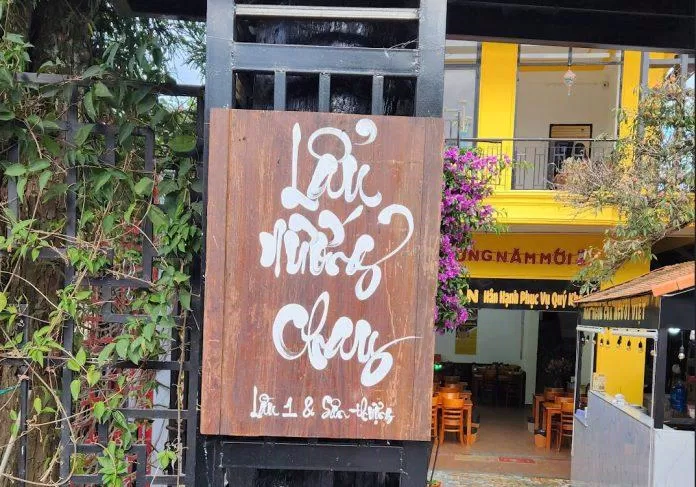 Lẩu
nướng
Chang
Lầu 1 & Sân thượng
ỪNG NĂM MỚI 2
N Hân Hạnh Phục Vụ Quý K